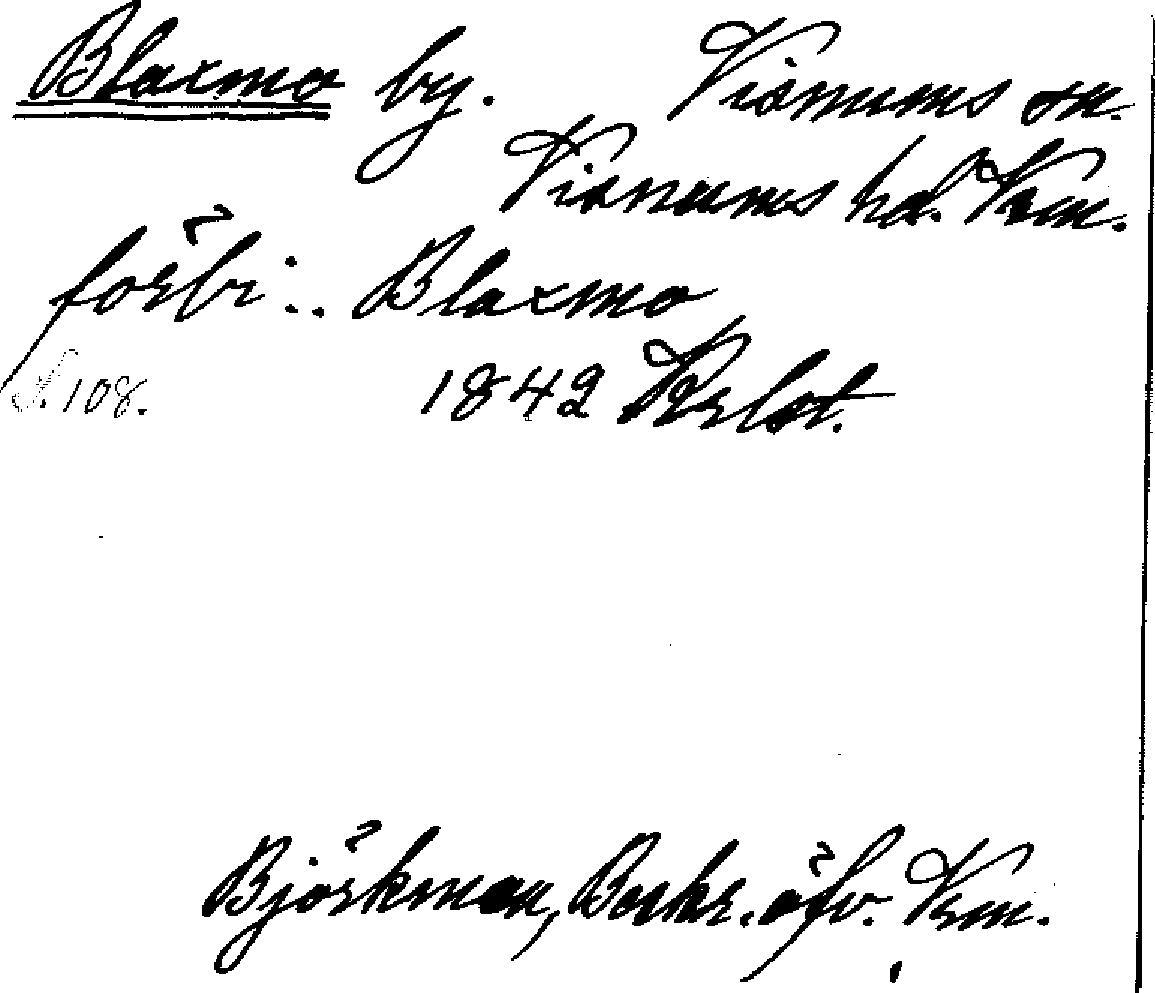 Blaxmo by. Visnums sn.
Visnums hd. Vrm.
förbi .. Blaxmo
S. 108. 1842 Krlst.
Björkman, Beskr. öfv. Vrm.